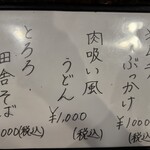 ぶっかけ
¥1000(税込)
肉吸い風
うどん
¥1,000
(税込)
とろろ
田舎そば
000(税込)